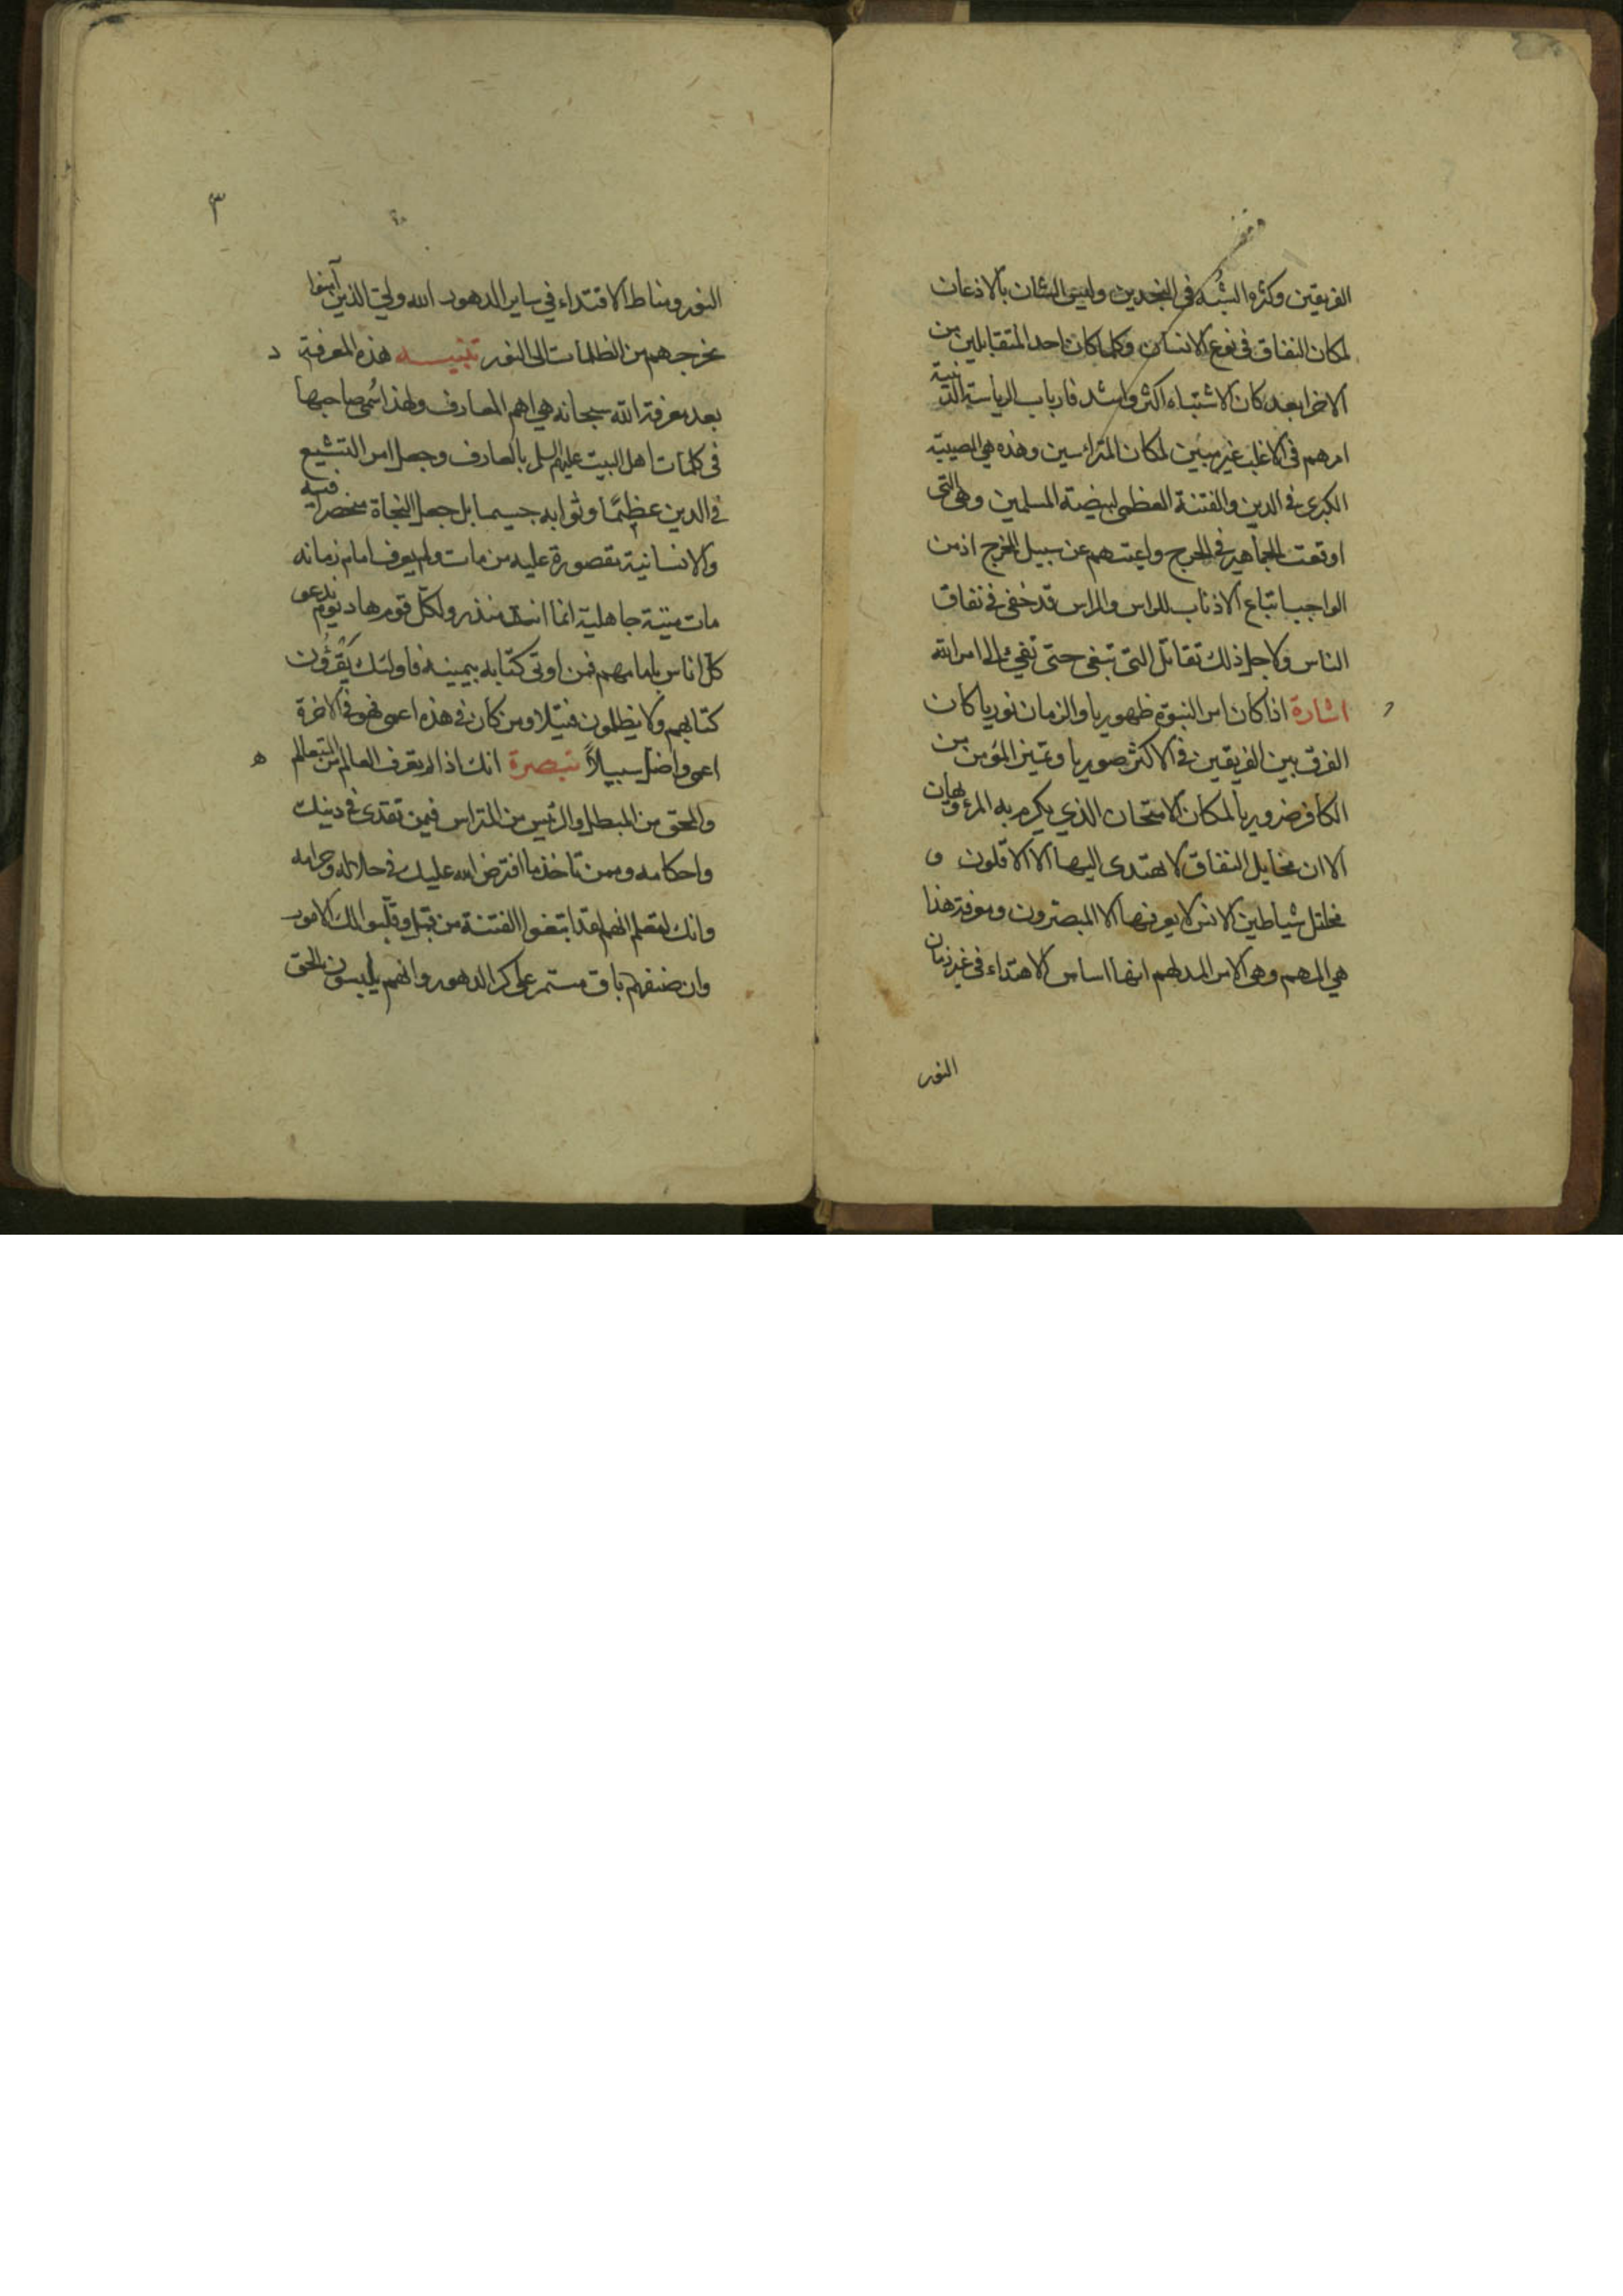 الفريقين وكثرة الشبه في النجدين وليس الشان بالاذعان
لمكان النفاق في نوع الانسان وكلما كان احد المتقابلين من
الاخر ابعد كان الاشتباه اكثر واشد فارباب الرياسة الدينية
امرهم في الاغلب غير مبين لمكان المترائسين وهذه هي المصيبة
الكبرى في الدين والفتنة العظمى لبيضة المسلمين وهي التي
اوقعت الجماهير في الحرج واعمتهم عن سبيل المخرج اذ من
الواجب اتباع الاذناب للراس والراس قد خفي في نفاق
الناس ولاجل ذلك تقاتل التي تبغي حتى تفيء الى امر الله
اشارة اذا كان امر النبوة ظهوريا والزمان نوريا كان
الفرق بين الفريقين في الاكثر صوريا وتميز المؤمن من
الكافر ضروريا لمكان الامتحان الذي يكرم به المرء ويهان
الا ان مخايل النفاق لا يهتدى اليها الا الاقلون و
مخاتل شياطين الانس لا يعرفها الا المبصرون ومعرفة هذا
هي المهم وهي الامر المدلهم انها اساس الاهتداء في غير زمان
النور
٣
النور ومناط الاقتداء في ساير الدهور الله ولي الذين آمنوا
يخرجهم من الظلمات الى النور تنبيه هذه المعرفة د
بعد معرفة الله سبحانه هي اهم المعارف ولهذا سُمي صاحبها
في كلمات اهل البيت عليهم السلم بالعارف وجعل امر التشيع
في الدين عظيمًا وثوابه جسيما بل جعل النجاة منحصرا فيه
والانسانية مقصورة عليه من مات ولم يعرف امام زمانه
مات ميتة جاهلية انما انت منذر ولكل قوم هاد يوم ندعو
كل اناس بامامهم فمن اوتى كتابه بيمينه فاولئك يَقْرَؤُن
كتابهم ولا يظلمون فتيلا ومن كان في هذه اعمى فهو في الاخرة
اعمى واضل سبيلاً تبصرة انك اذا لم تعرف العالم من المتعالم ه
والمحق من المبطل والرئيس من المتراس فبمن تقتدي في دينك
واحكامه وممن تاخذ ما افترض الله عليك في حلاله وحرامه
وانك لتعلم انهم لقد ابتغوا الفتنة من قبل وقلبوا لك الامور
وان صنفهم باق مستمر على كر الدهور وانهم يلبسون الحق